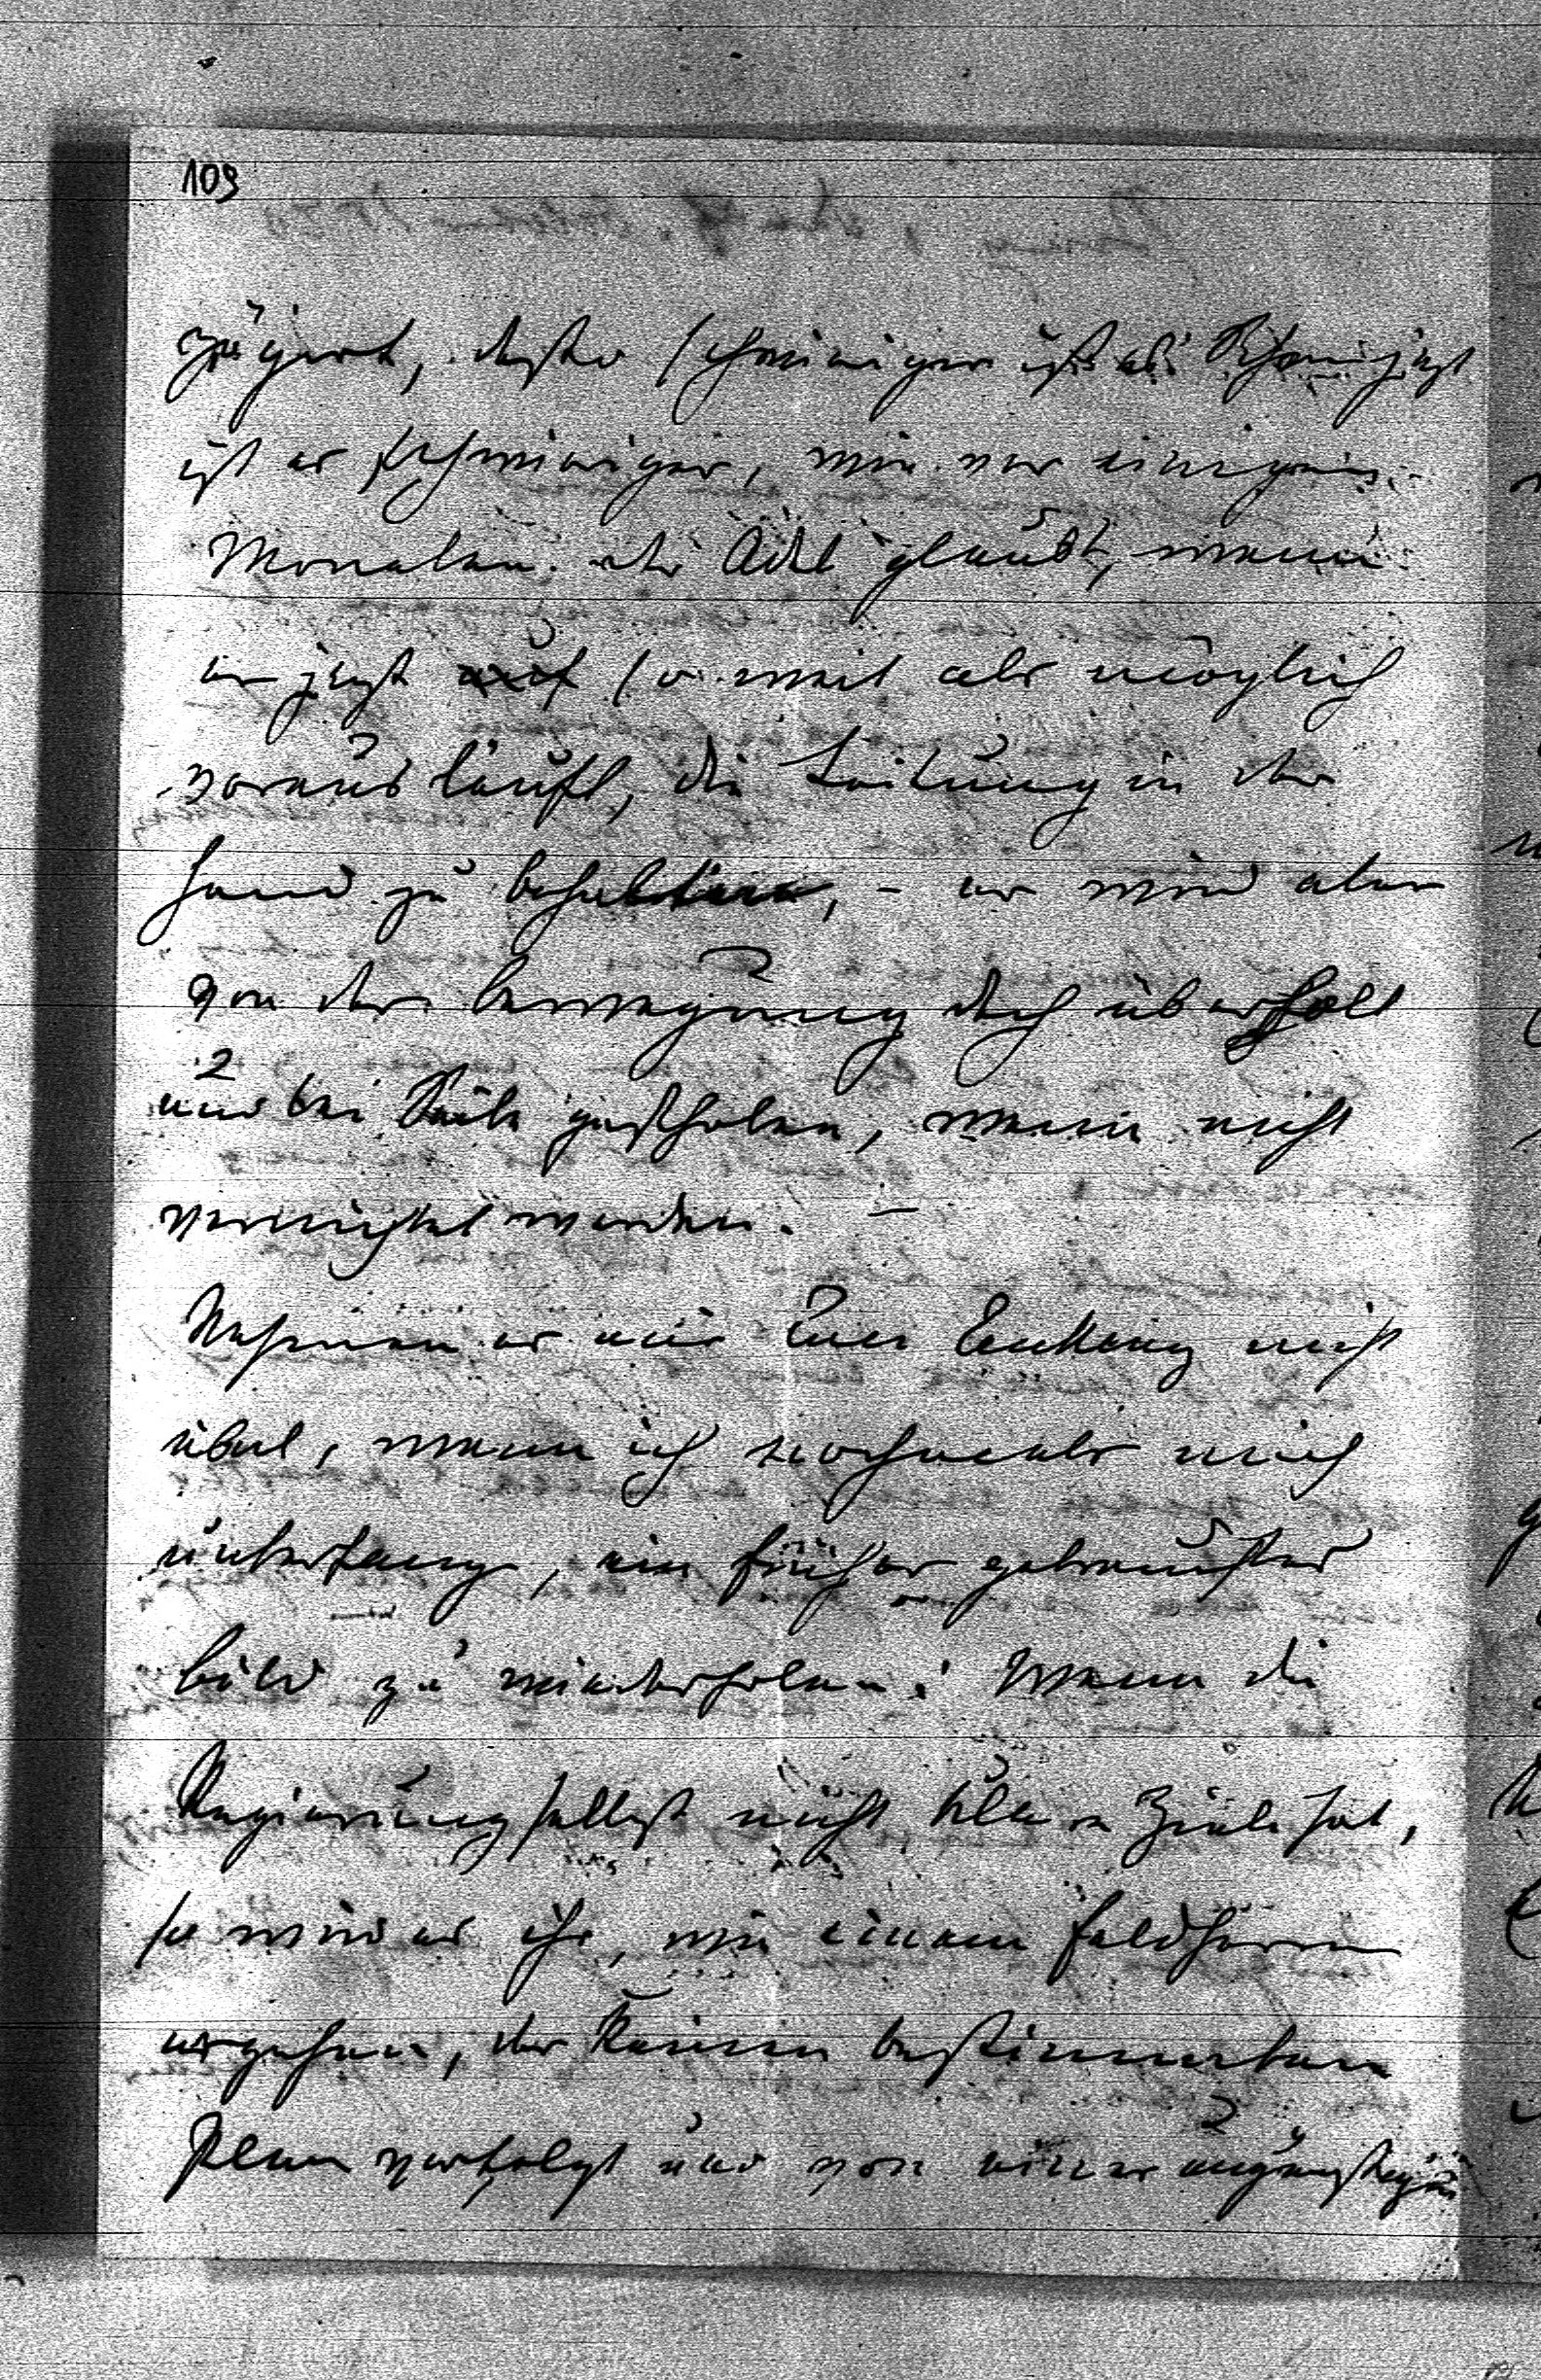 109
zögert, desto schwieriger ists als schon jezt
ist es schwieriger, wie vor einigen
Monaten. der Adel glaubt, wenn
er jezt so weit als möglich
voraus läuft, die Leitung in der
Hand zu behalten, – er wird aber
von der bewegung doch überholt
und bei Seite geschoben, wenn nicht
vernichtet werden. –
Nehmen es mir Euer nicht
übel, wenn ich nochmals mich
unterfange, ein früher gebrauchtes
bild zu wiederholen: Wenn die
Regierung selbst nicht klare Ziele hat,
so wird es ihr, wie einem Feldherrn
ergehen, der keinen bestimmten
Plan verfolgt und von einer